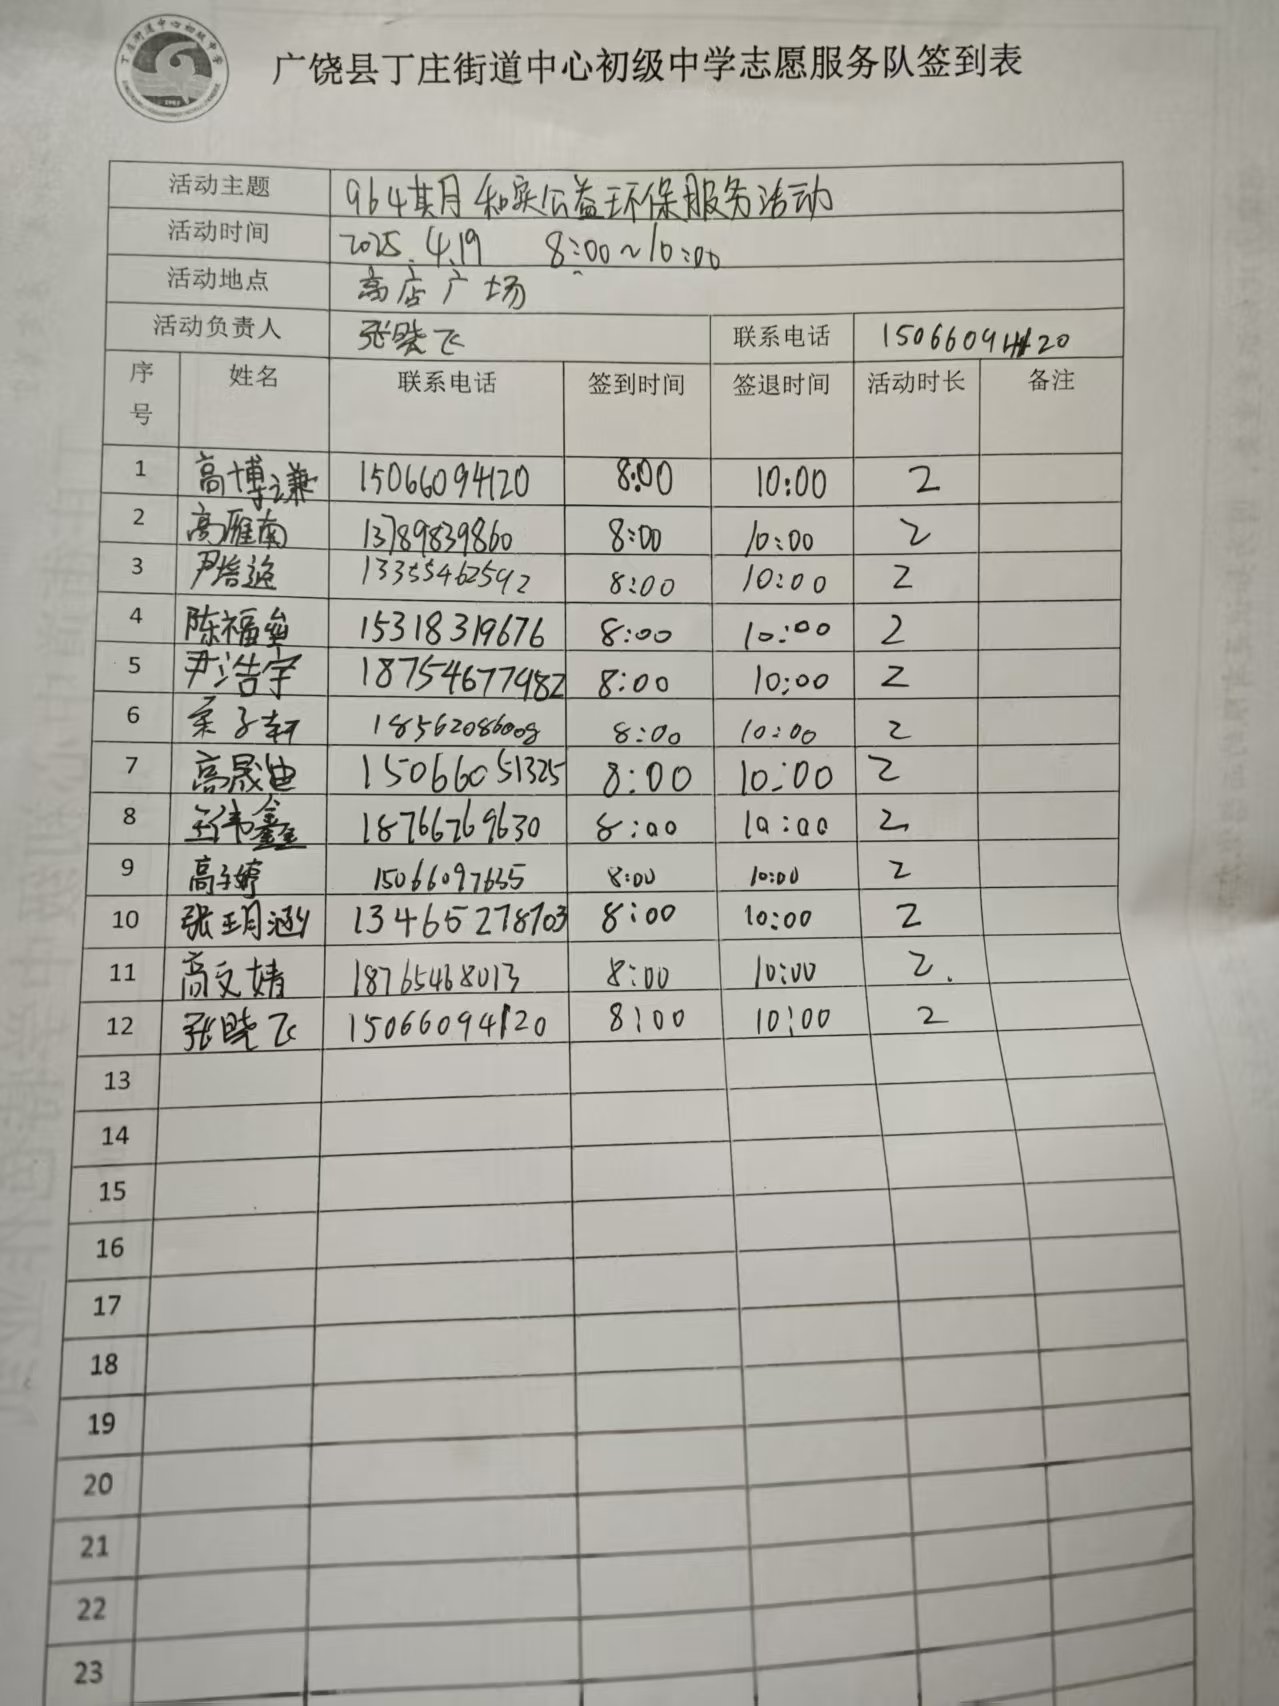 丁庄街道中心初级中学
广饶县丁庄街道中心初级中学志愿服务队签到表
活动主题 964期 和实公益环保服务活动
活动时间 2025.4.19 8:00~10:00
活动地点 高店广场
活动负责人 张晓飞 联系电话 15066094120
序号 姓名 联系电话 签到时间 签退时间 活动时长 备注
1 高博谦 15066094120 8:00 10:00 2
2 高雁南 13789839860 8:00 10:00 2
3 尹 13355462592 8:00 10:00 2
4 陈福 15318319676 8:00 10:00 2
5 尹浩宇 18754677982 8:00 10:00 2
6 子轩 18562086008 8:00 10:00 2
7 高晟迪 15066051325 8:00 10:00 2
8 王伟鑫 18766769630 8:00 10:00 2
9 高子婷 15066097635 8:00 10:00 2
10 张玥涵 13465278703 8:00 10:00 2
11 高文婧 18765468013 8:00 10:00 2.
12 张晓飞 15066094120 8:00 10:00 2
13
14
15
16
17
18
19
20
21
22
23